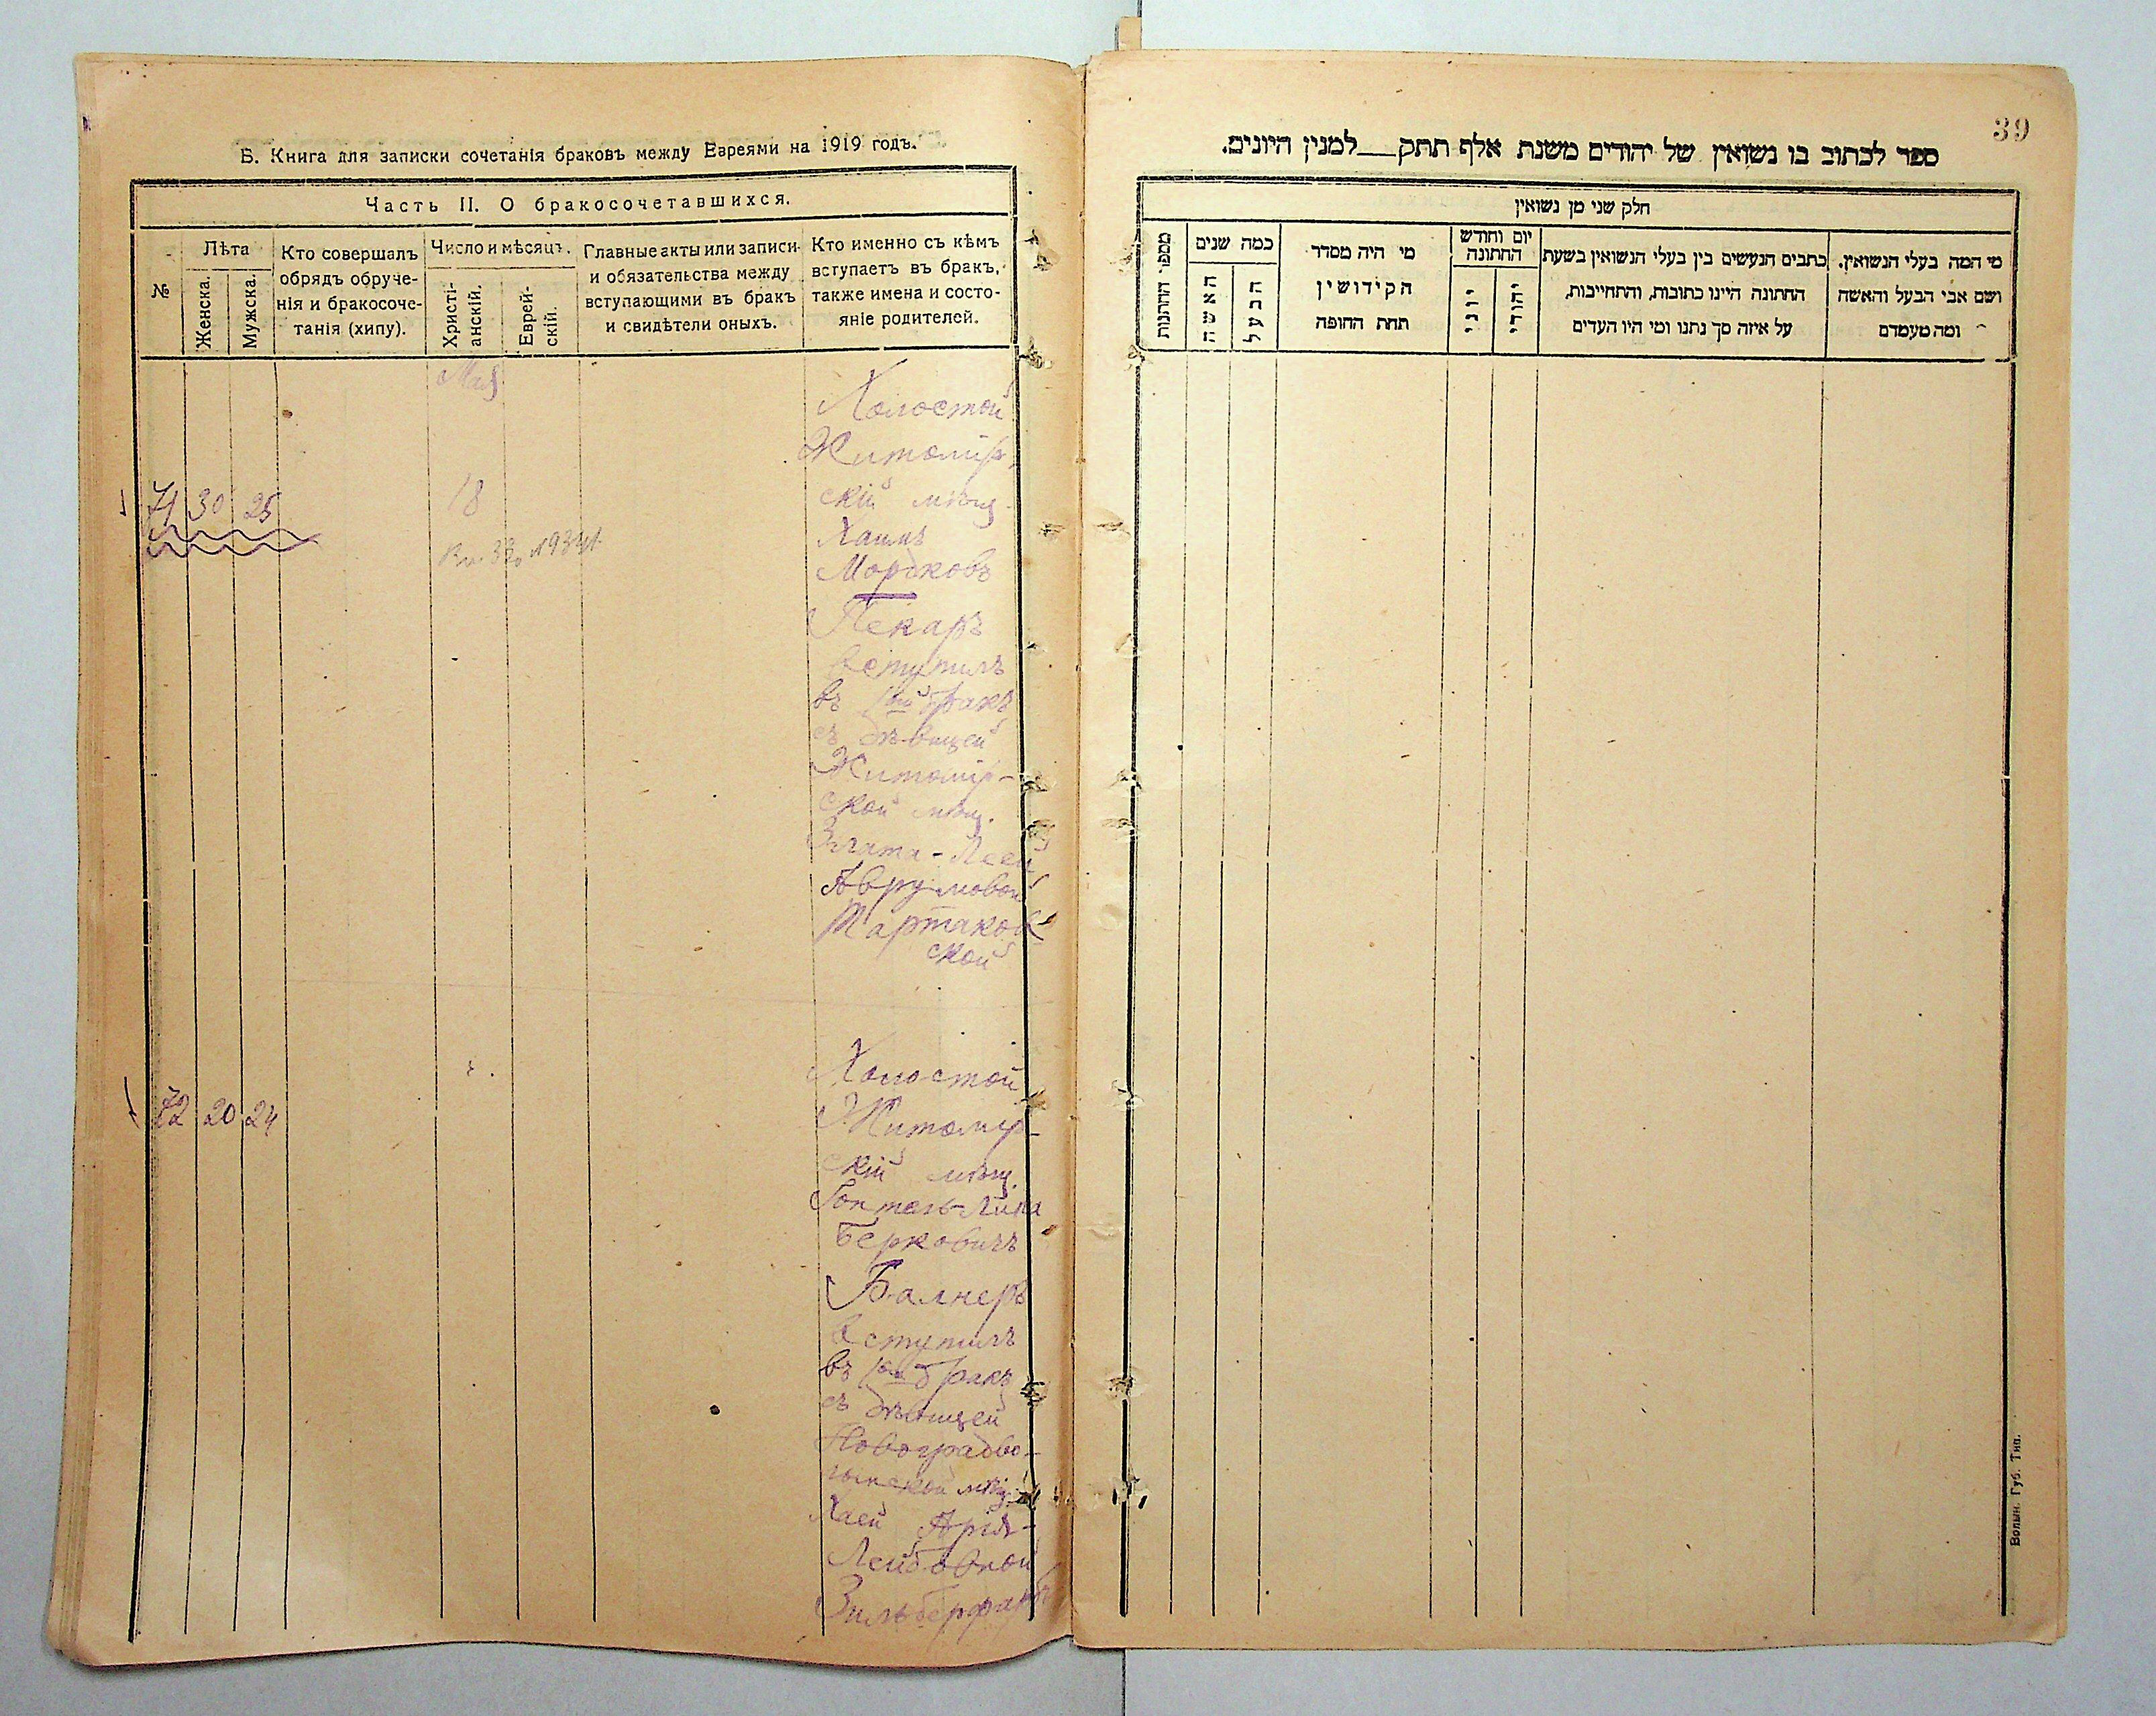 Б. Книга для записки сочетанія браковъ между Евреями на 1919 годъ.
Часть II. О бракосочетавшихся.
№
Лѣта
Женска.
Мужска.
Кто совершалъ
обрядъ обруче-
нія и бракосоче-
танія (хипу).
Число и мѣсяцъ.
Христі-
анскій.
Еврей-
скій.
Главные акты или записи
и обязательства между
вступающими въ бракъ
и свидѣтели оныхъ.
Кто именно съ кѣмъ
вступаетъ въ бракъ,
также имена и состо-
яніе родителей.
Мая
71 30 25 18
Холостой
Житомір-
скій мѣщ.
Хаимъ
Мордковъ
Пекаръ
вступилъ
въ 1ый бракъ
съ дѣвицей
Житомір-
ской мѣщ.
Злата-Леей
Аврумовой
Тартаков
ской
72 20 24
Холостой
Житомір-
скій мѣщ.
Берковичъ
Балнеръ
вступилъ
въ 1ый бракъ
съ дѣвицей
Новоградво-
лынской мѣщ.
Хаей Арія-
Лейбовной
Зильберфарбъ
39
ספר לכתוב בו נשואין של יהודים משנת אלף תתק__למנין היונים.
חלק שני מן נשואין
מספר החתנות
כמה שנים
האשה
הבעל
מי היה מסדר
הקידושין
תחת החופה
יום וחודש
החתונה
יוני
יהודי
כתבים הנעשים בין בעלי הנשואין בשעת
החתונה היינו כתובות, והתחייבות,
על איזה סך נתנו ומי היו העדים
מי המה בעלי הנשואין.
ושם אבי הבעל והאשה
ומה מעמדם
Волын. Губ. Тип.